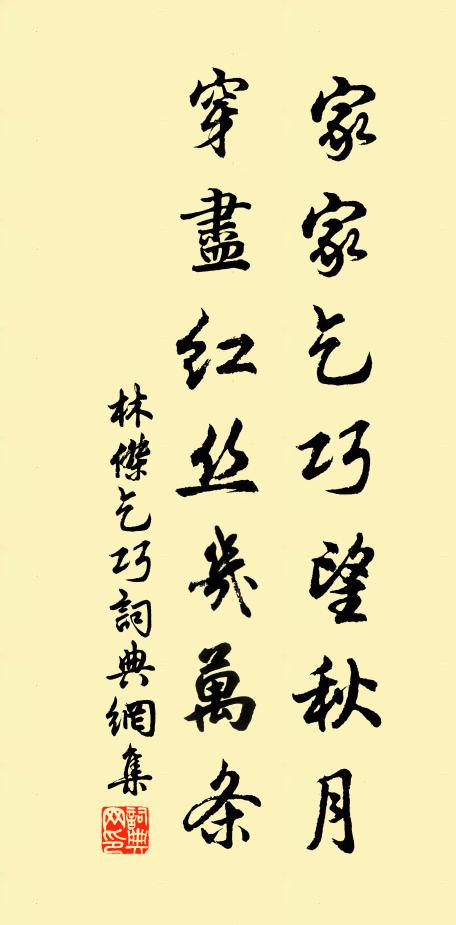 家家乞巧望秋月
穿盡红丝幾萬条
林傑乞巧詞典網集
詞典
网印